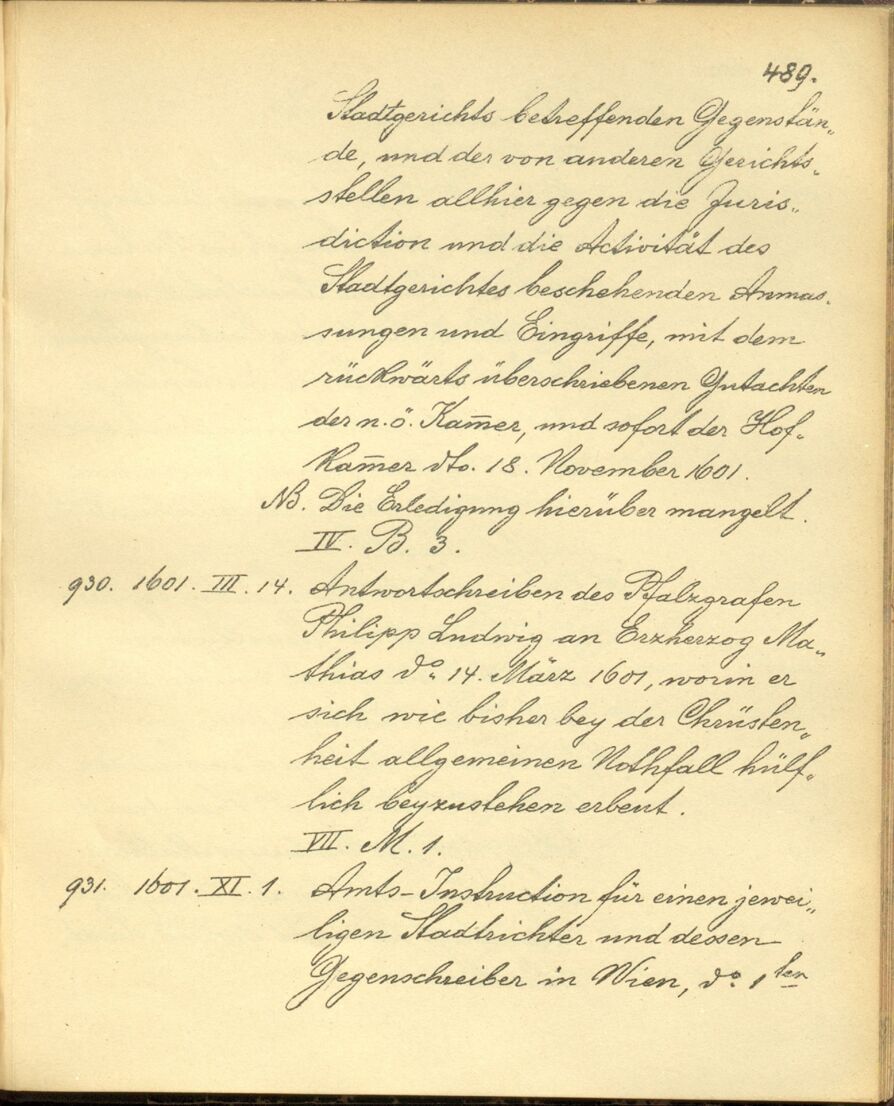 489.
Stadtgerichts betreffenden Gegenstän„
de, und der von anderen Gerichts„
stellen allhier gegen die Juris„
diction und die Activität des
Stadtgerichtes beschehenden Anmas„
sungen und Eingriffe, mit dem
rückwärts überschriebenen Gutachten
der n.ö. Kam̄er, und sofort der Hof„
kam̄er dto. 18. November 1601.
NB. Die Erledigung hierüber mangelt.
IV. B. 3.
930. 1601. III. 14. Antwortschreiben des Pfalzgrafen
Philipp Ludwig an Erzherzog Ma„
thias do. 14. März 1601, worin er
sich wie bisher bey der Chrüsten„
heit allgemeinen Nothfall hülf„
lich beyzustehen erbeut.
VII. M. 1.
931. 1601. XI. 1. Amts-Instruction für einen jewei„
ligen Stadtrichter und dessen
Gegenschreiber in Wien, do. 1ten